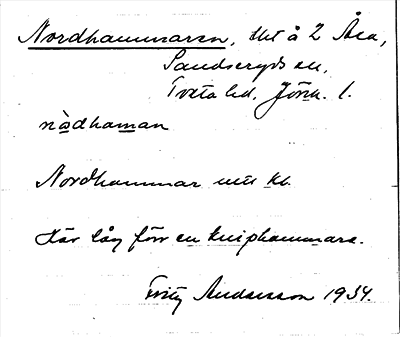 Nordhammaren, ht å 2 Åsa,
Sandseryds sn,
Tveta hd, Jönk. l.
nɷ̀dhaman
Nordhammar utt kb.
Här låg förr en kniphammare.
Fritz Andersson 1934.